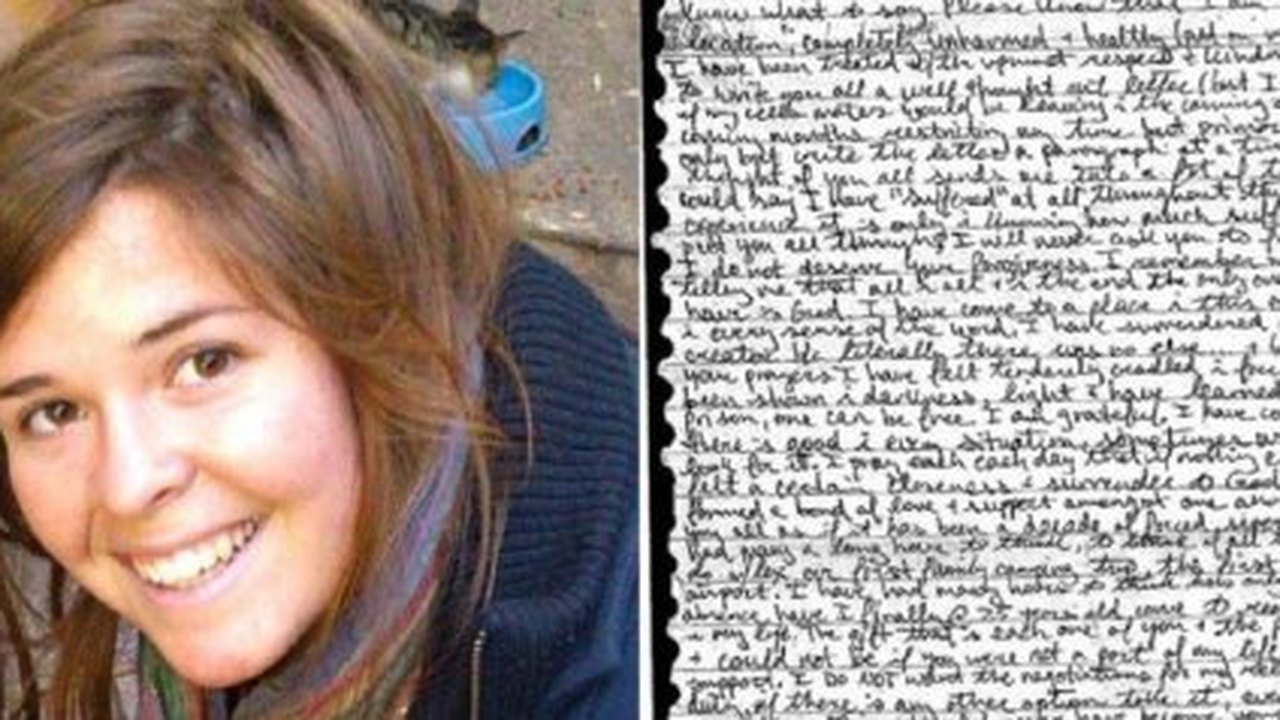 know what to say. Please know that I am
location, completely unharmed + healthy (put on
I have been treated w/ the utmost respect + kindness
to write you all a well thought out letter (but I
if my cell mates would be leaving in the coming
coming months restricting my time but primarily
only but write the letter a paragraph at a time
thought of you all sends me into a fit of
could say I have "suffered" at all throughout this
experience it is only in knowing how much
put you all through; I will never ask you to
I do not deserve your forgiveness. I remember
telling me that all in all in the end the only one
have is God. I have come to a place in this
in every sense of the word, I have surrendered
creator b/c literally there was no else.... +
your prayers I have felt tenderly cradled in
been shown in darkness, light + have learned
prison, one can be free. I am grateful. I have
there is good in every situation, sometimes we
look for it. I pray each each day that if nothing
felt a certain closeness + surrender to God
formed a bond of love + support amongst one
you all as if it has been a decade of forced
had many a long hour to think, to think of all
do w/ Lex, our first family camping trip, the first
airport. I have had many hours to think how
absence have I finally @ 25 years old come to
in my life. The gift that is each one of you + the
+ could not be if you were not a part of my life
support. I DO NOT want the negotiations for my
duty, if there is any other option take it, even